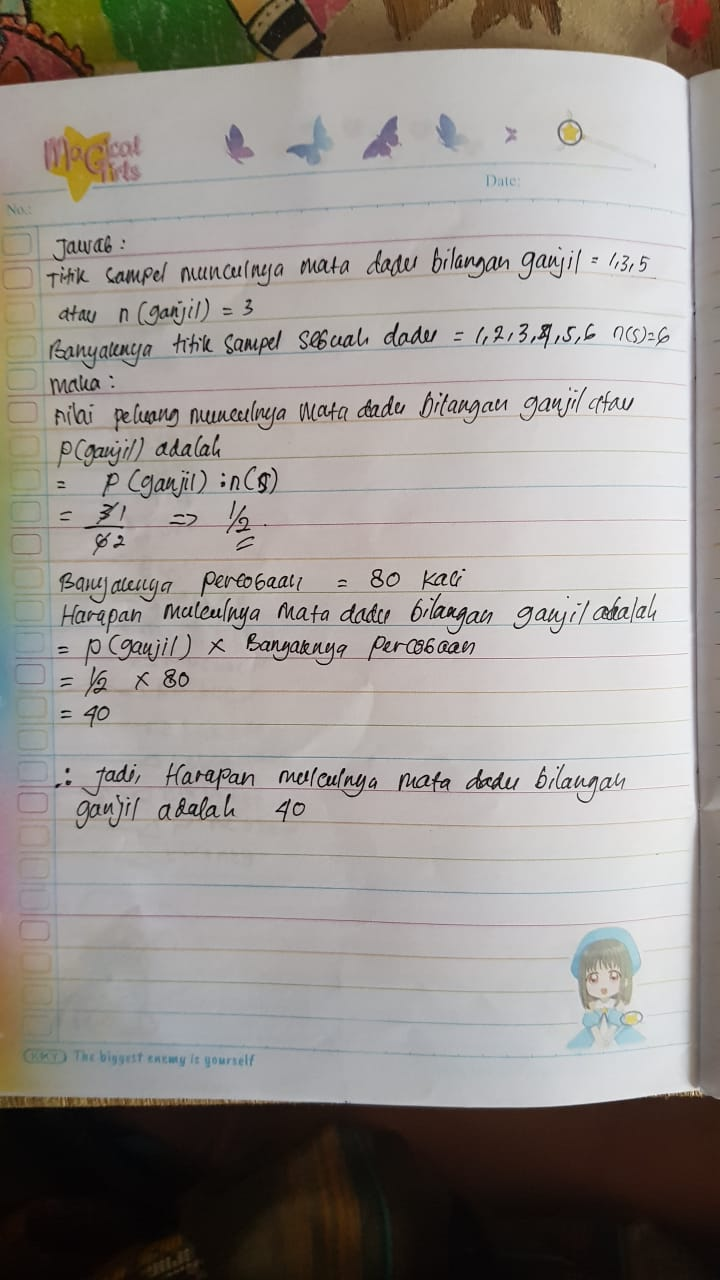 Magical
Girls
No.:
Date:
Jawab :
Titik sampel munculnya mata dadu bilangan ganjil = 1,3,5
atau n (ganjil) = 3
Banyaknya titik sampel sebuah dadu = 1,2,3,4,5,6 n(s)=6
Maka :
Nilai peluang munculnya mata dadu bilangan ganjil atau
P(ganjil) adalah
= P (ganjil) : n(S)
= 3 1 / 6 2 => 1/2
Banyaknya percobaan = 80 kali
Harapan mulculnya mata dadu bilangan ganjil adalah
= P (ganjil) × Banyaknya percobaan
= 1/2 × 80
= 40
∴ Jadi, Harapan mulculnya mata dadu bilangan
ganjil adalah 40
KKY The biggest enemy is yourself